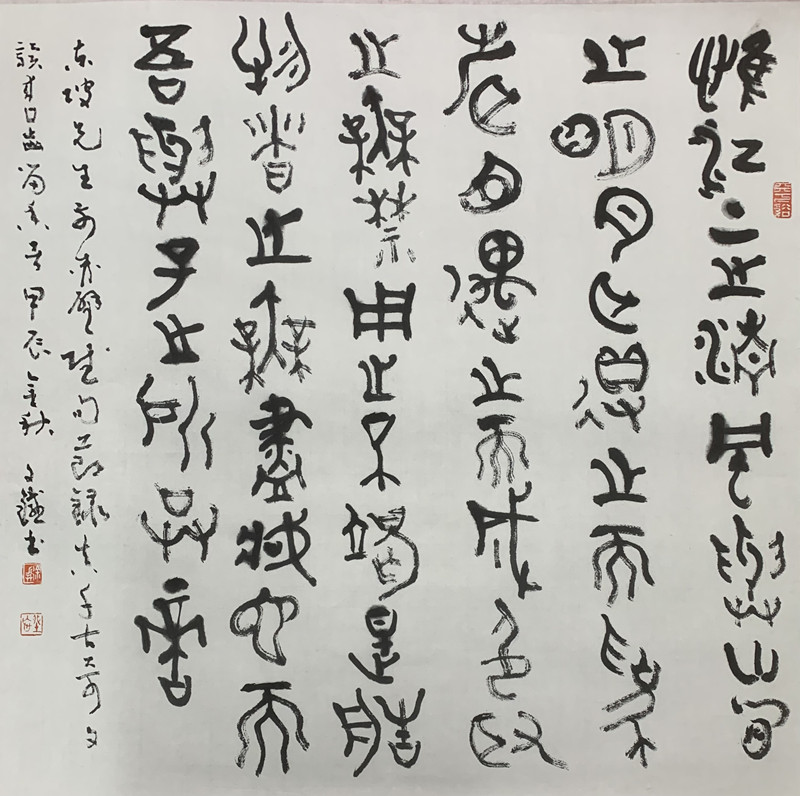 惟江上之清風與山間
之明月耳得之而為
聲目遇之而成色取
之無禁用之不竭是造
物者之無盡藏也而
吾與子之所共適
東坡先生前赤壁賦句節錄真千古奇文
讀來口齒留香 甲辰金秋 文 書